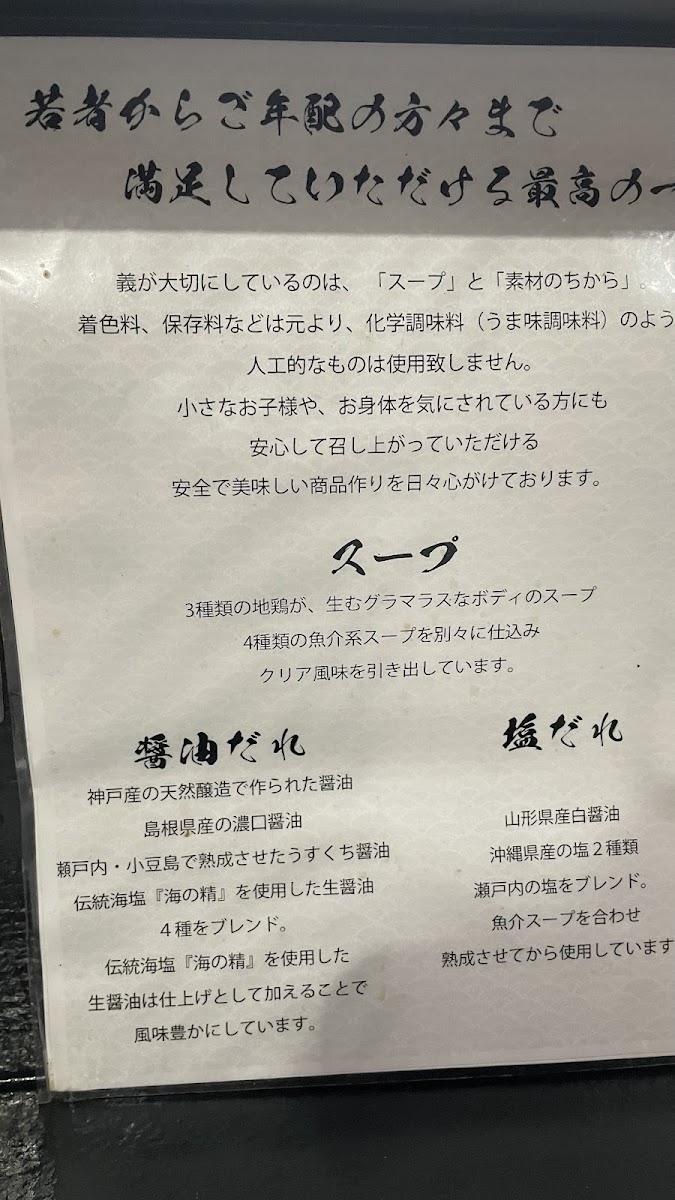 若者からご年配の方々まで
満足していただける最高の一
義が大切にしているのは、「スープ」と「素材のちから」。
着色料、保存料などは元より、化学調味料（うま味調味料）のよう
人工的なものは使用致しません。
小さなお子様や、お身体を気にされている方にも
安心して召し上がっていただける
安全で美味しい商品作りを日々心がけております。
スープ
3種類の地鶏が、生むグラマラスなボディのスープ
4種類の魚介系スープを別々に仕込み
クリア風味を引き出しています。
醤油だれ
神戸産の天然醸造で作られた醤油
島根県産の濃口醤油
瀬戸内・小豆島で熟成させたうすくち醤油
伝統海塩『海の精』を使用した生醤油
４種をブレンド。
伝統海塩『海の精』を使用した
生醤油は仕上げとして加えることで
風味豊かにしています。
塩だれ
山形県産白醤油
沖縄県産の塩２種類
瀬戸内の塩をブレンド。
魚介スープを合わせ
熟成させてから使用しています